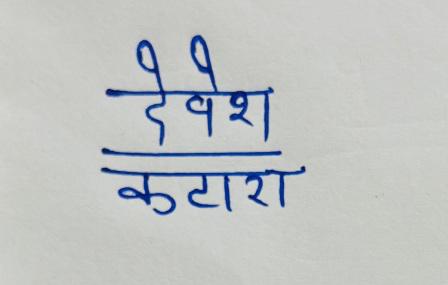 देवेश
कटारा